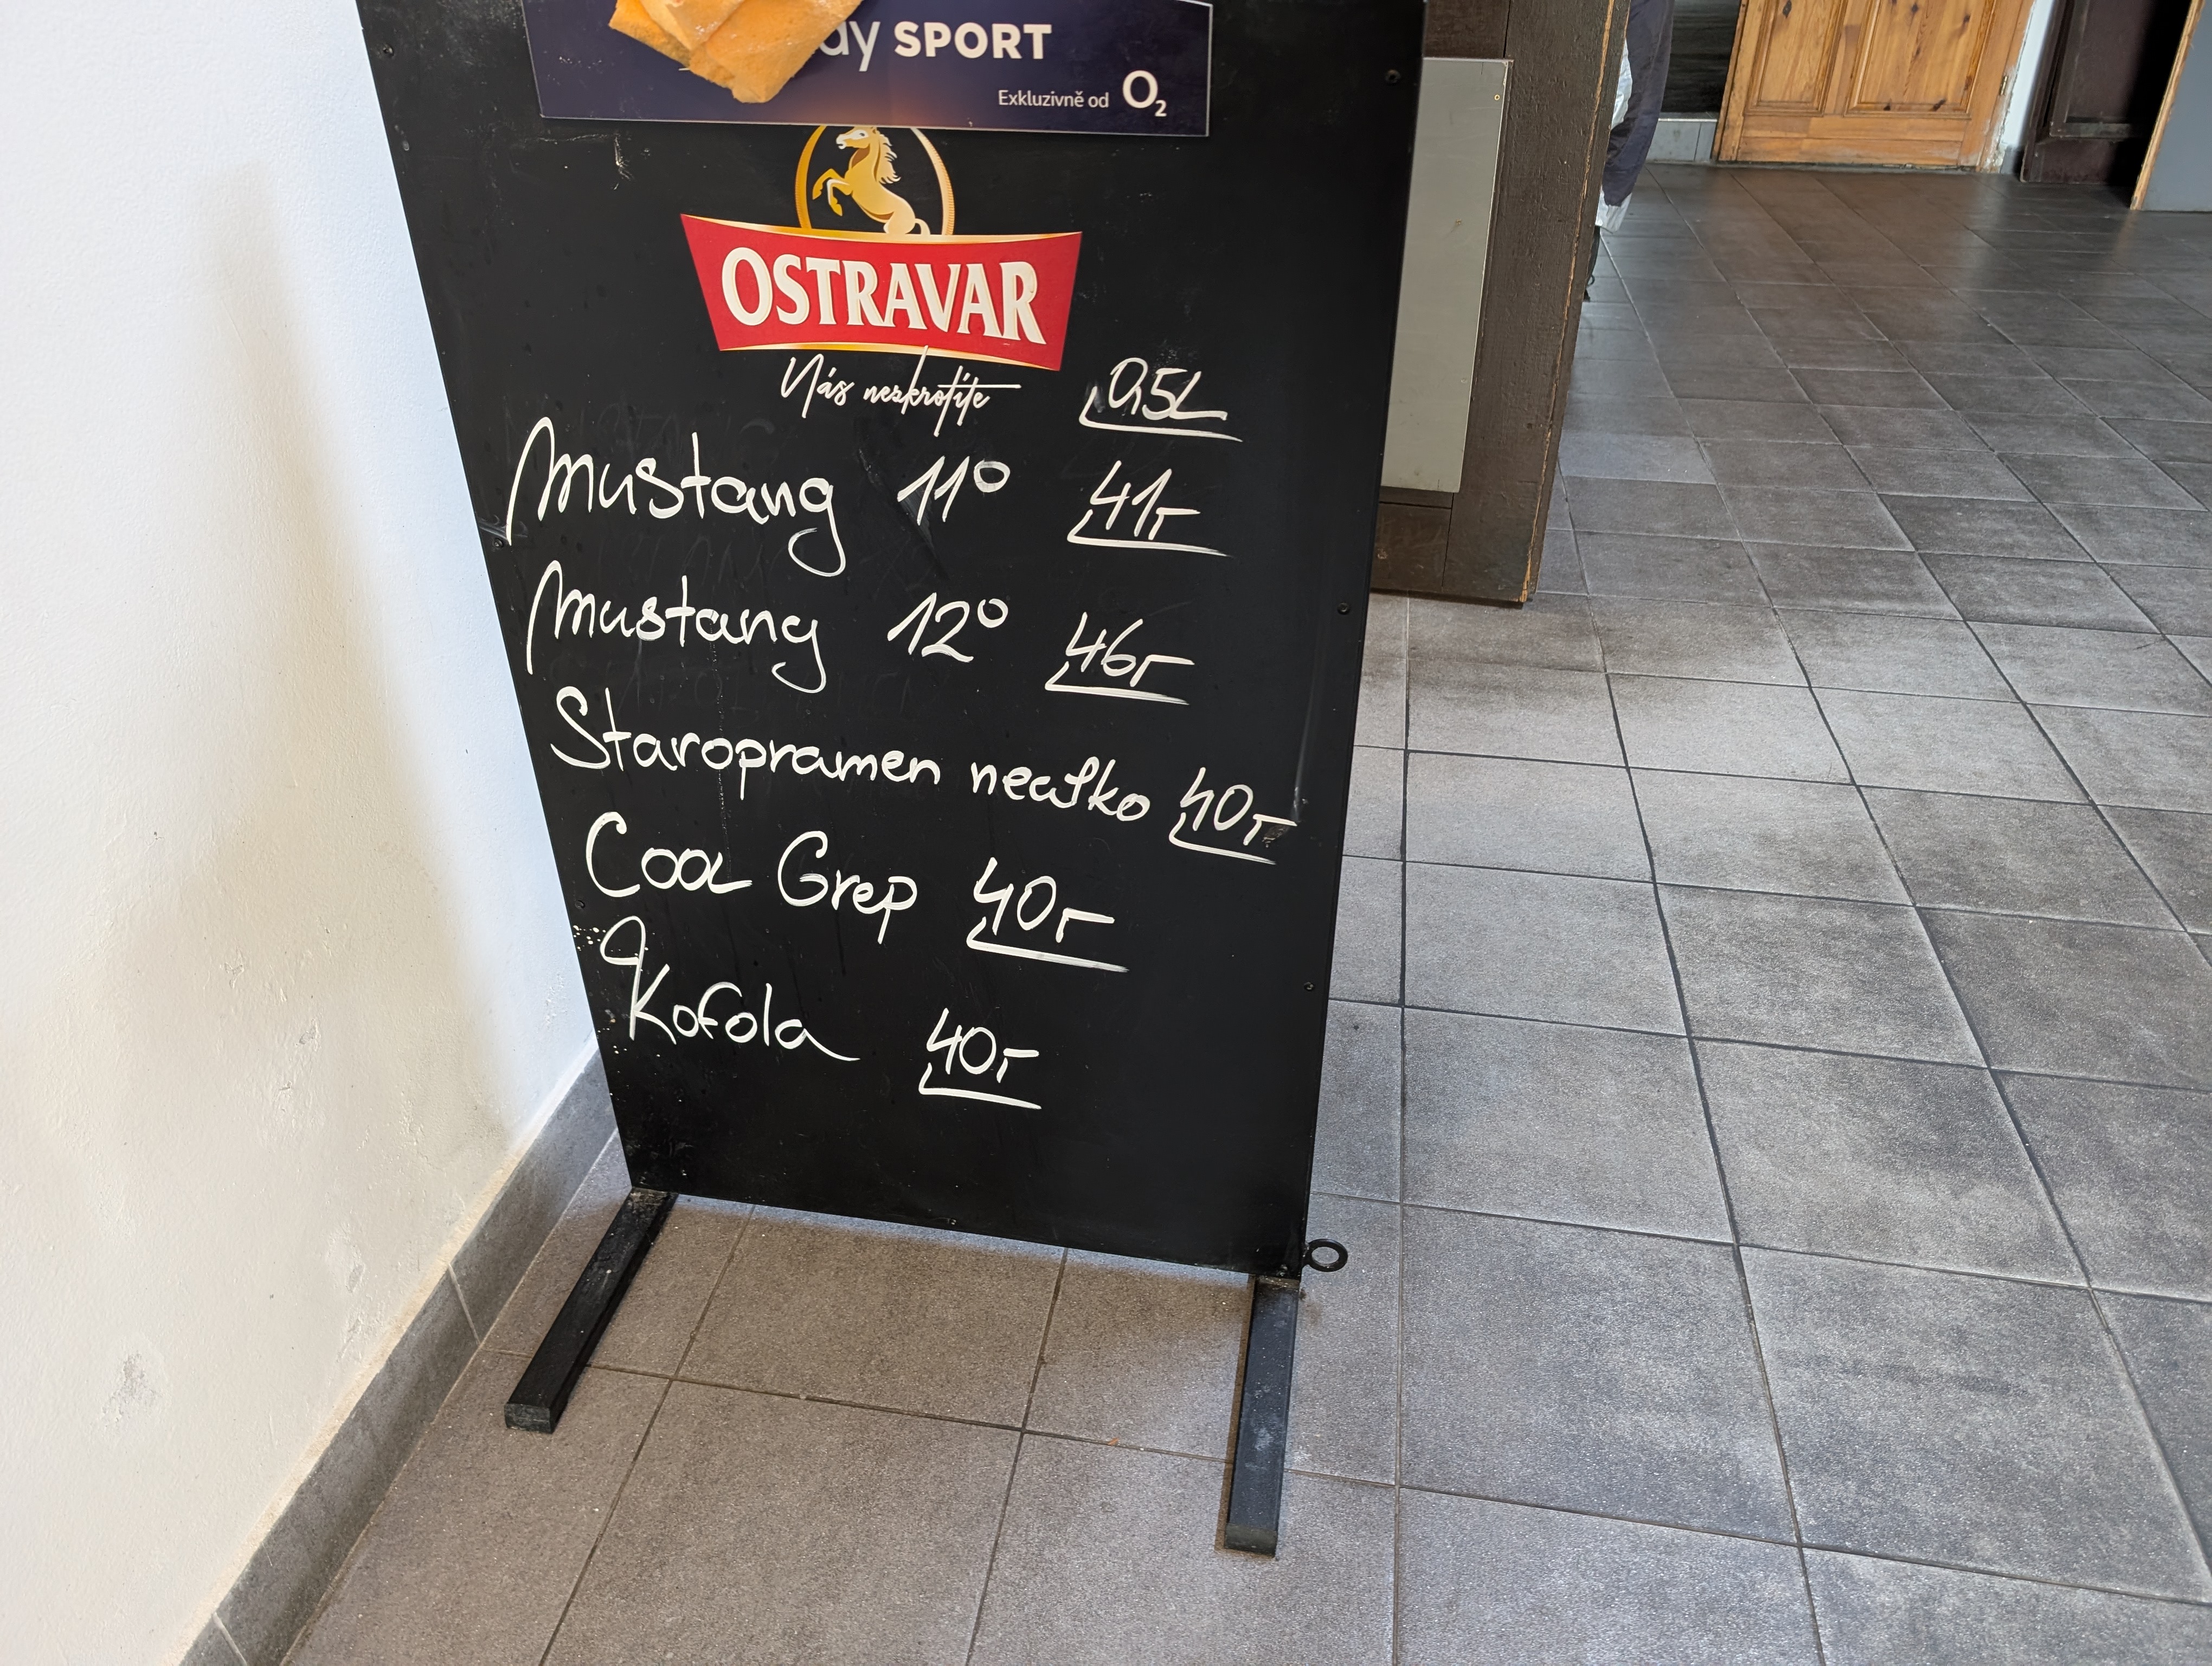 ay SPORT
Exkluzivně od O2
OSTRAVAR
Nás nezkrotíte
0,5L
Mustang 11° 41,-
Mustang 12° 46,-
Staropramen nealko 40,-
Cool Grep 40,-
Kofola 40,-